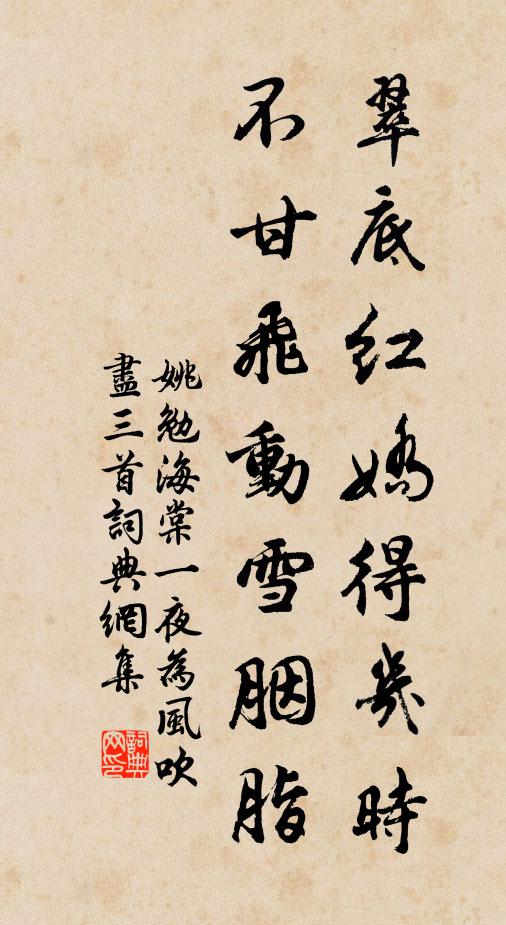 翠底红嬌得幾時
不甘飛動雪胭脂
姚勉海棠一夜為風吹
盡三首詞典網集
詞典
网印